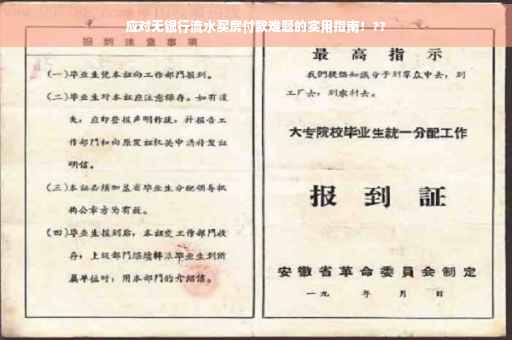 应对无银行流水买房付款难题的实用指南！??
报到注意事项
(一)毕业生凭本证向工作部門报到。
(二)毕业生对本证应注意保存。如有遗
失，应即登报声明作废，并报告工
作部門和向原发证机关申請补发证
明信。
(三)本证必须加盖省毕业生分配领导机
构公章方为有效。
(四)毕业生报到后，本证交工作部門收
存；上级部門
毕业生到所
属单位时，用本部門的介紹信。
最高指示
我們提倡知識分子到羣众中去，到
工厂去，到农村去。
大专院校毕业生統一分配工作
报到証
安徽省革命委員会制定
一九 年 月 日